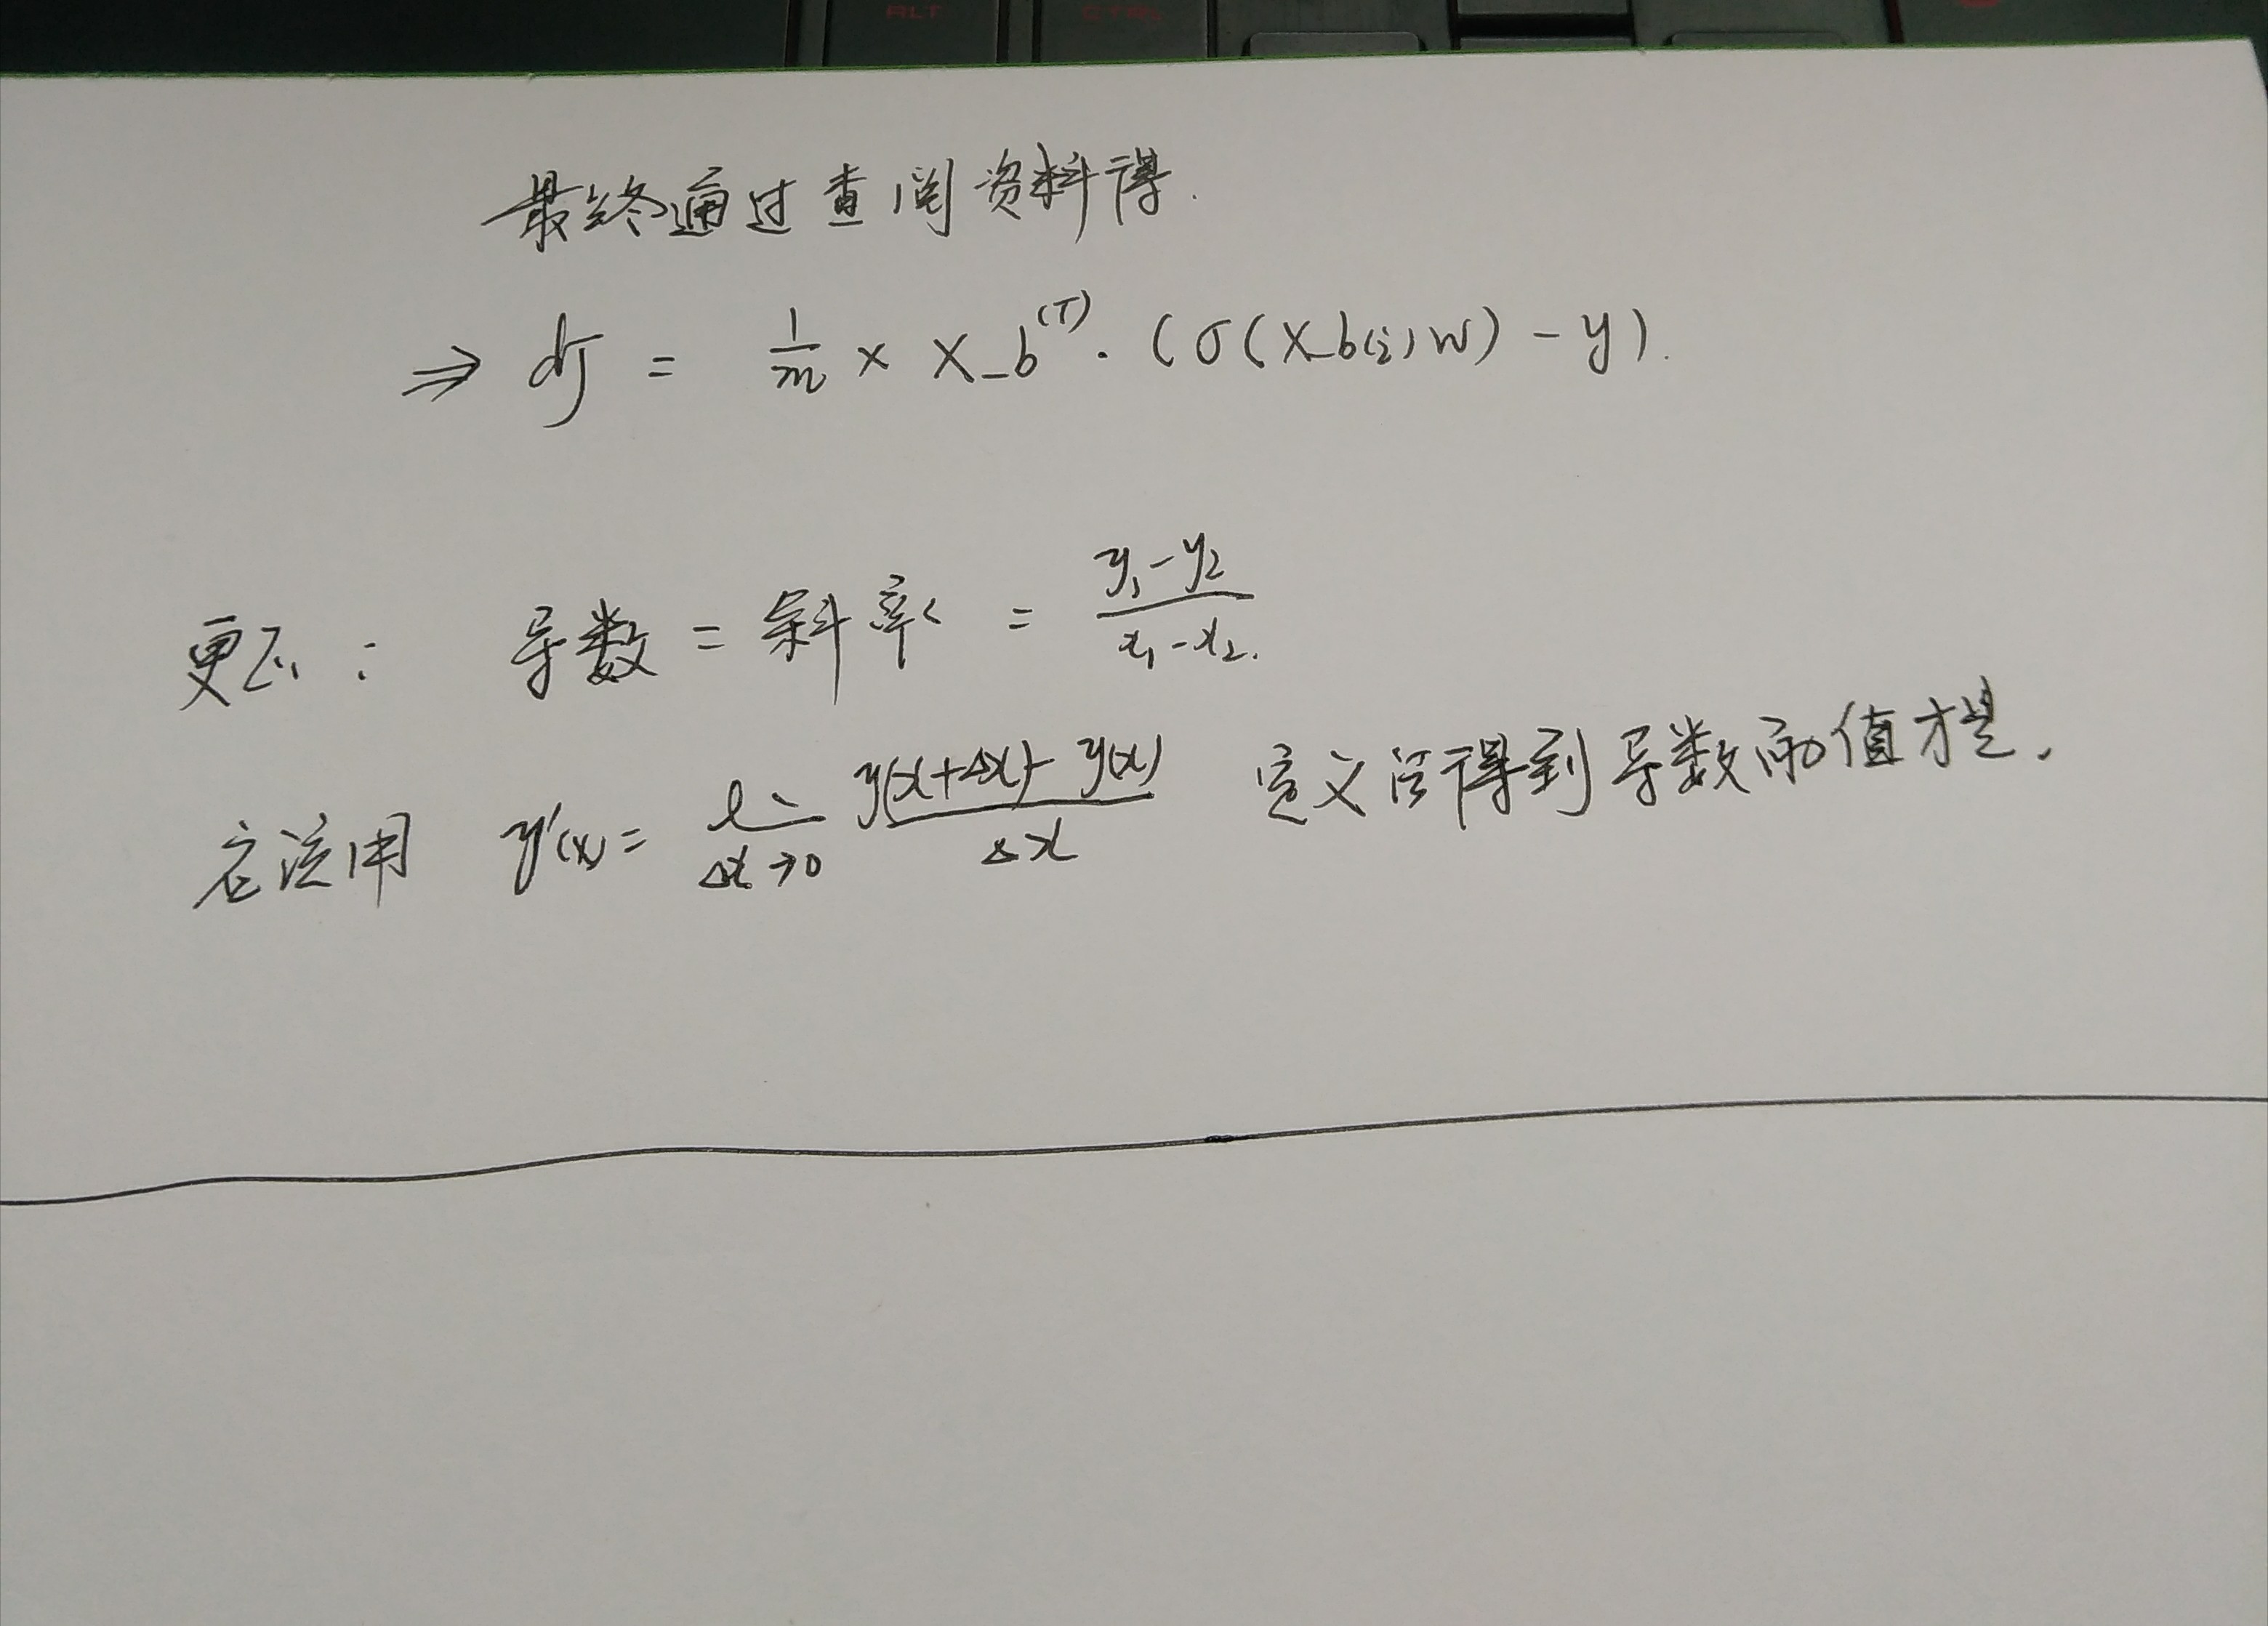 ALT CTRL
最终通过查阅资料得.
⇒ dJ = 1/m × X_b^(T) · (σ(X_b(i)W) - y).
更正: 导数 = 斜率 = (y₁-y₂)/(x₁-x₂).
应该用 y'(x) = lim Δx→0 (y(x+Δx) - y(x))/Δx 定义法得到导数的值才是.